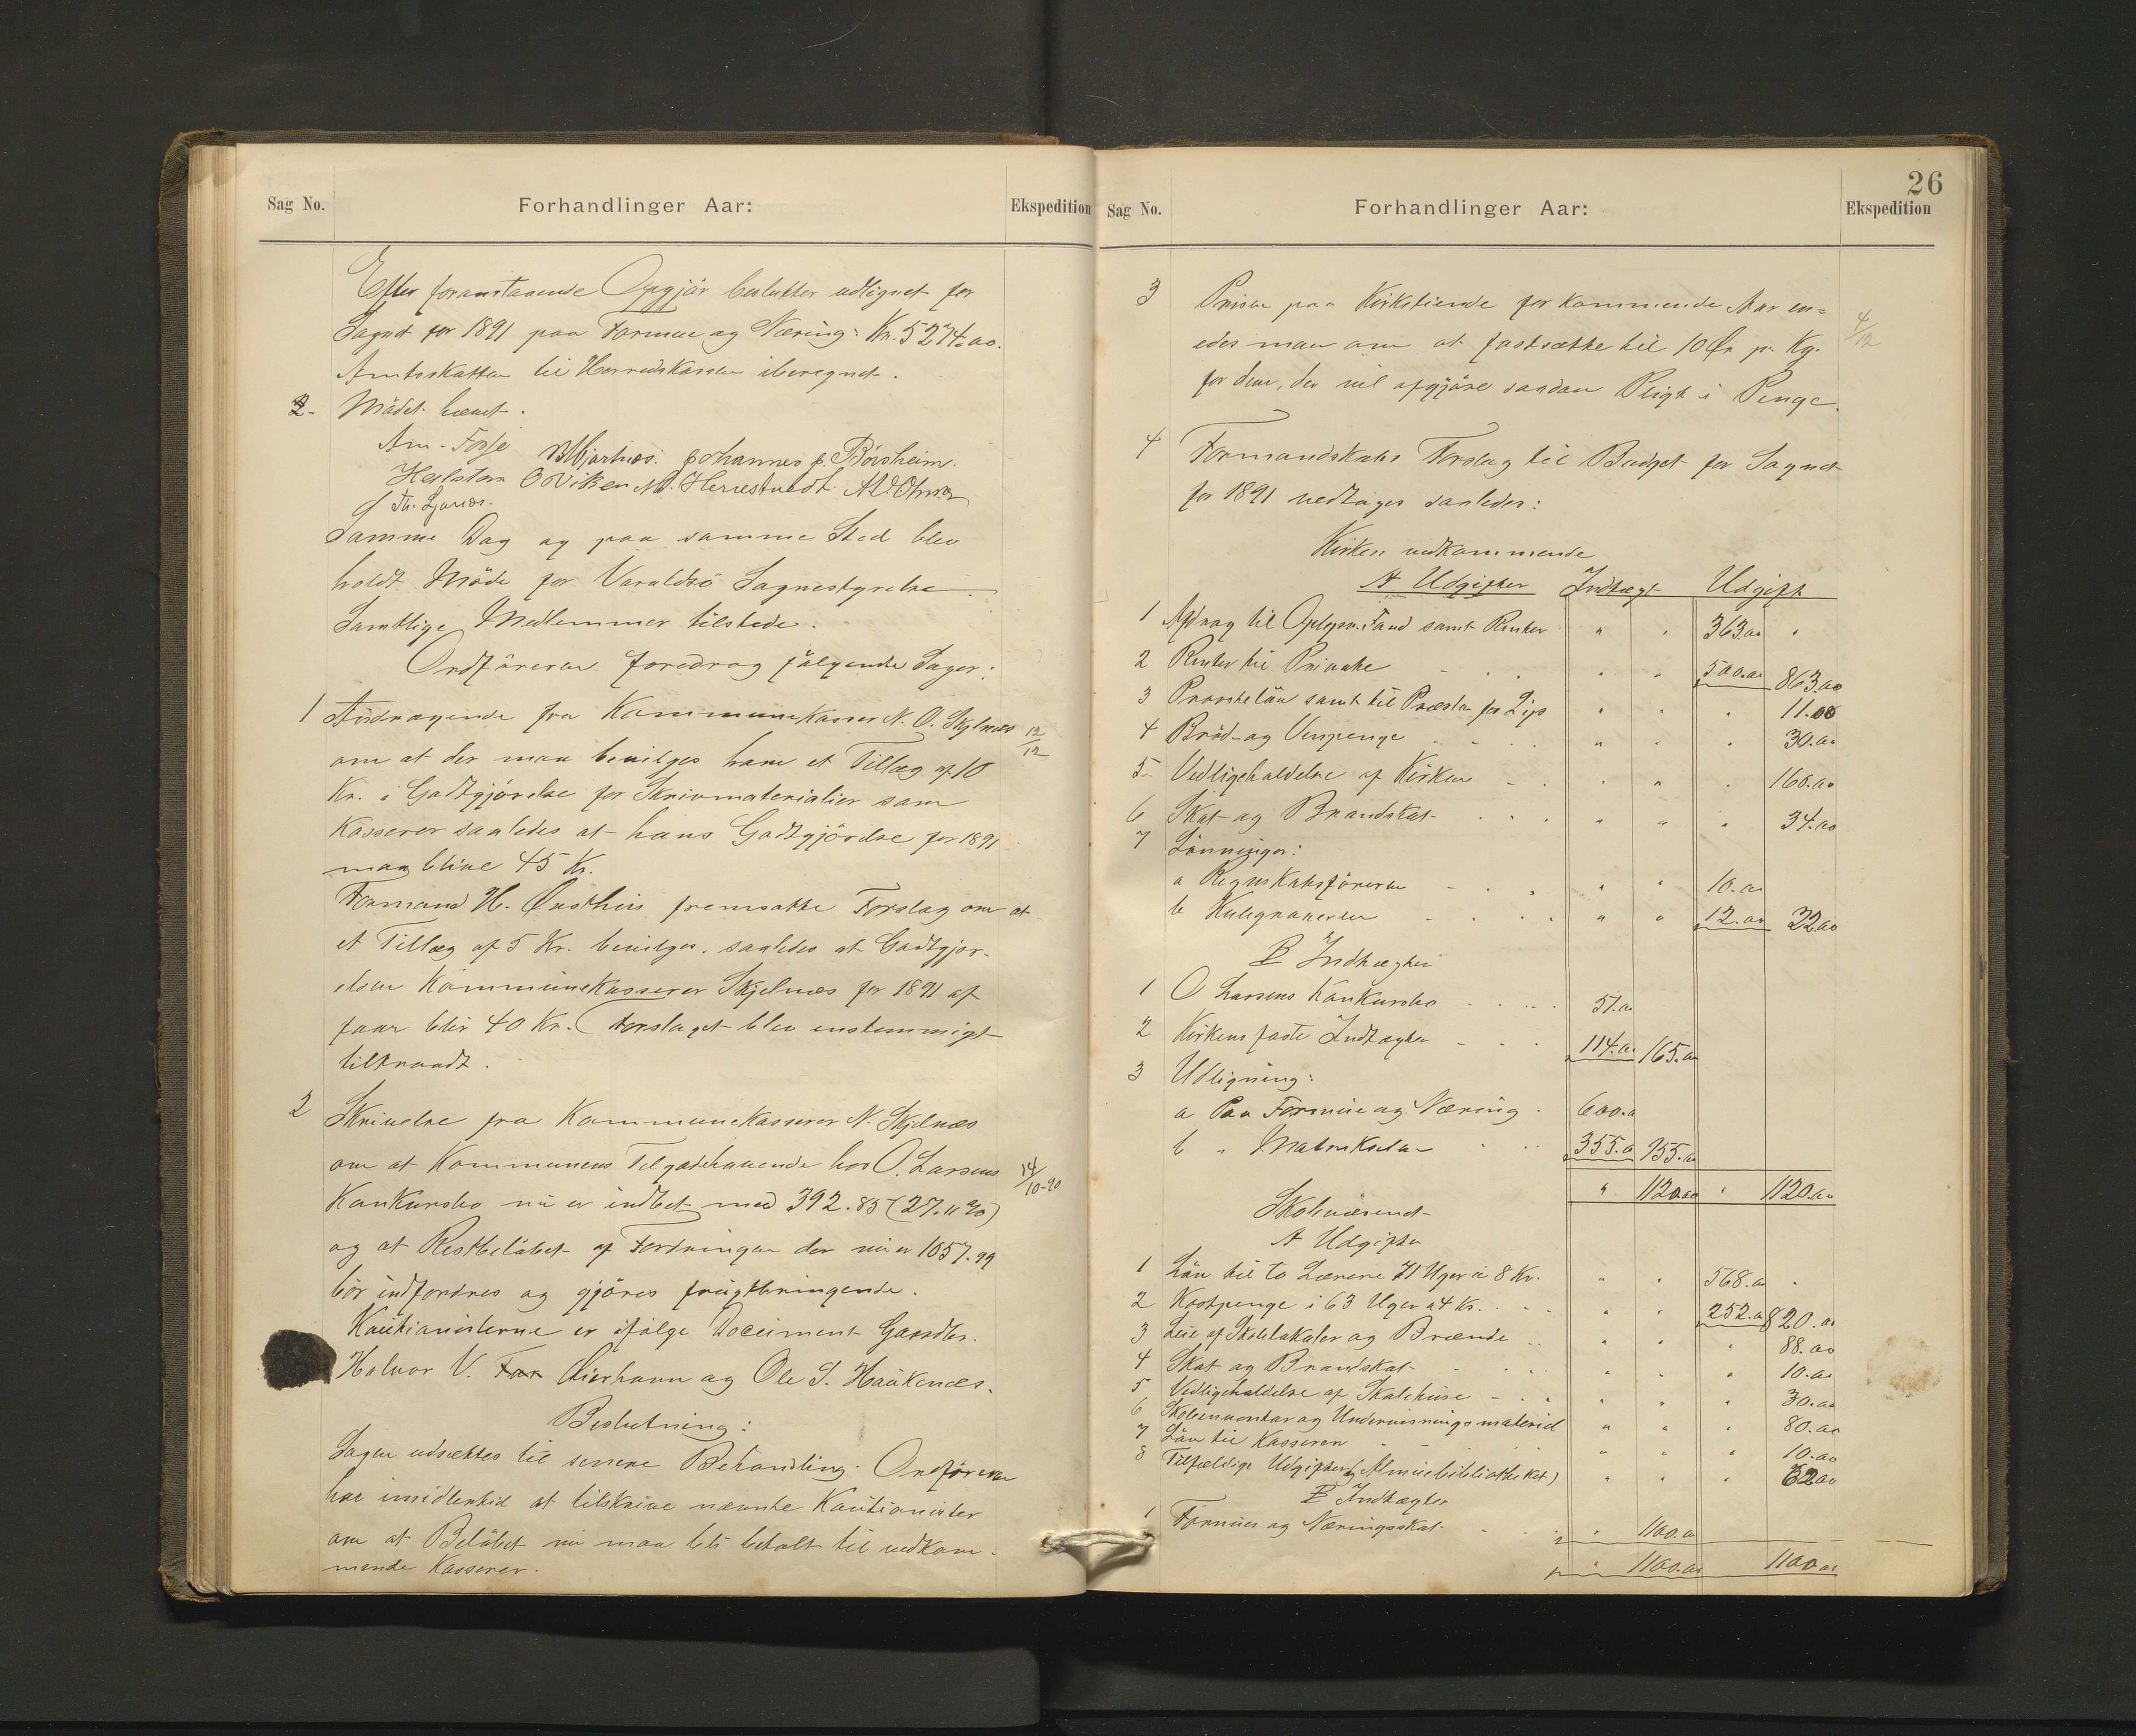 Sag No. Forhandlinger Aar: Ekspedition
Efter foranstaaende Opgjör beslutter udlignet for
Sognet for 1891 paa Formue og Næring: Kr. 5274.00.
Amtsskatten til Herredskassen iberegnet.
2- Mödet hævet.
Johannes J. Börsheim.
O Viken
Samme Dag og paa samme Sted blev
holdt Möde for Varaldsö Sognestyrelse.
Samtlige Medlemmer tilstede.
Ordföreren foredrog fölgende Sager:
1 Andragende fra Kommunekasser N. O. Skjelnæs 12/12
om at der maa bevilges ham et Tillæg af 10
Kr. i Godtgjörelse for Skrivmaterialier som
Kasserer saaledes at hans Godtgjörelse for 1891
maa blive 45 Kr.
Formand H. Østhus fremsatte Forslag om at
et Tillæg af 5 Kr. bevilges, saaledes at Godtgjör-
elsen Kommunekasserer Skjelnæs for 1891 af
faar blir 40 Kr. Forslaget blev enstemmigt
tiltraadt.
2 Skrivelse fra Kommunekasserer N. Skjelnæs
om at Kommunens Tilgodehavende hos O. Larsens 14/10-90
Konkursbo nu er indbet. med 392.85 (27.11 90)
og at Restbelöbet af Fordringen der nu er 1057.99
bör indfordres og gjöres frugtbringende.
Kautionisterne er ifölge Document Gaardbr.
Halvor V. Lierhavn og Ole S. Haukenæs.
Beslutning:
Sagen udsættes til senere Behandling. Ordföreren
har imidlertid at tilskrive nævnte Kautionister
om at Belöbet nu maa bli betalt til vedkom-
mende Kasserer.
26
Sag No. Forhandlinger Aar: Ekspedition
3 Prisen paa Kirketiende for kommende Aar en= 4/12
edes man om at fastsætte til 10 Øre pr. Kg.
for dem, der vil afgjöre saadan Pligt i Penge.
4 Formandskabs Forslag til Budget for Sognet
for 1891 vedtages saaledes:
Kirken vedkommende
A Udgifter Indtægt Udgift
1 Afdrag til Oplysn. Fond samt Renter " " 363.00 "
2 Renter til Private " " 500.00 863.00
3 Provstelön samt til Præsten for Lys " " " 11.00
4 Bröd- og Vinpenge " " " 30.00
5 Vedligeholdelse af Kirken " " " 160.00
6 Skat og Brandskat " " " 34.00
7 Lönninger:
a Regnskabsföreren " " 10.00
b Kulegraveren " " 12.00 22.00
B Indtægter
1 O Larsens Konkursbo 51.00
2 Kirkens faste Indtægter 114.00 165.00
3 Udligning:
a Paa Formue og Næring 600.00
b " Matrikulen 355.00 955.00
" 1120.00 " 1120.00
Skolevæsenet
A Udgifter
1 Lön til to Lærere 71 Uger à 8 Kr. " " 568.00 "
2 Kostpenge i 63 Uger à 4 Kr. " " 252.00 820.00
3 Leie af Skolelokaler og Brænde " " " 88.00
4 Skat og Brandskat " " " 10.00
5 Vedligeholdelse af Skolehuse " " " 30.00
6 Skoleinventar og Undervisningsmateriel " " " 80.00
7 Lön til Kasseren " " " 10.00
8 Tilfældige Udgifter (Almuebibliotheket) " " " 62.00
B Indtægter
1 Formues og Næringsskat " 1100.00
" 1100.00 1100.00